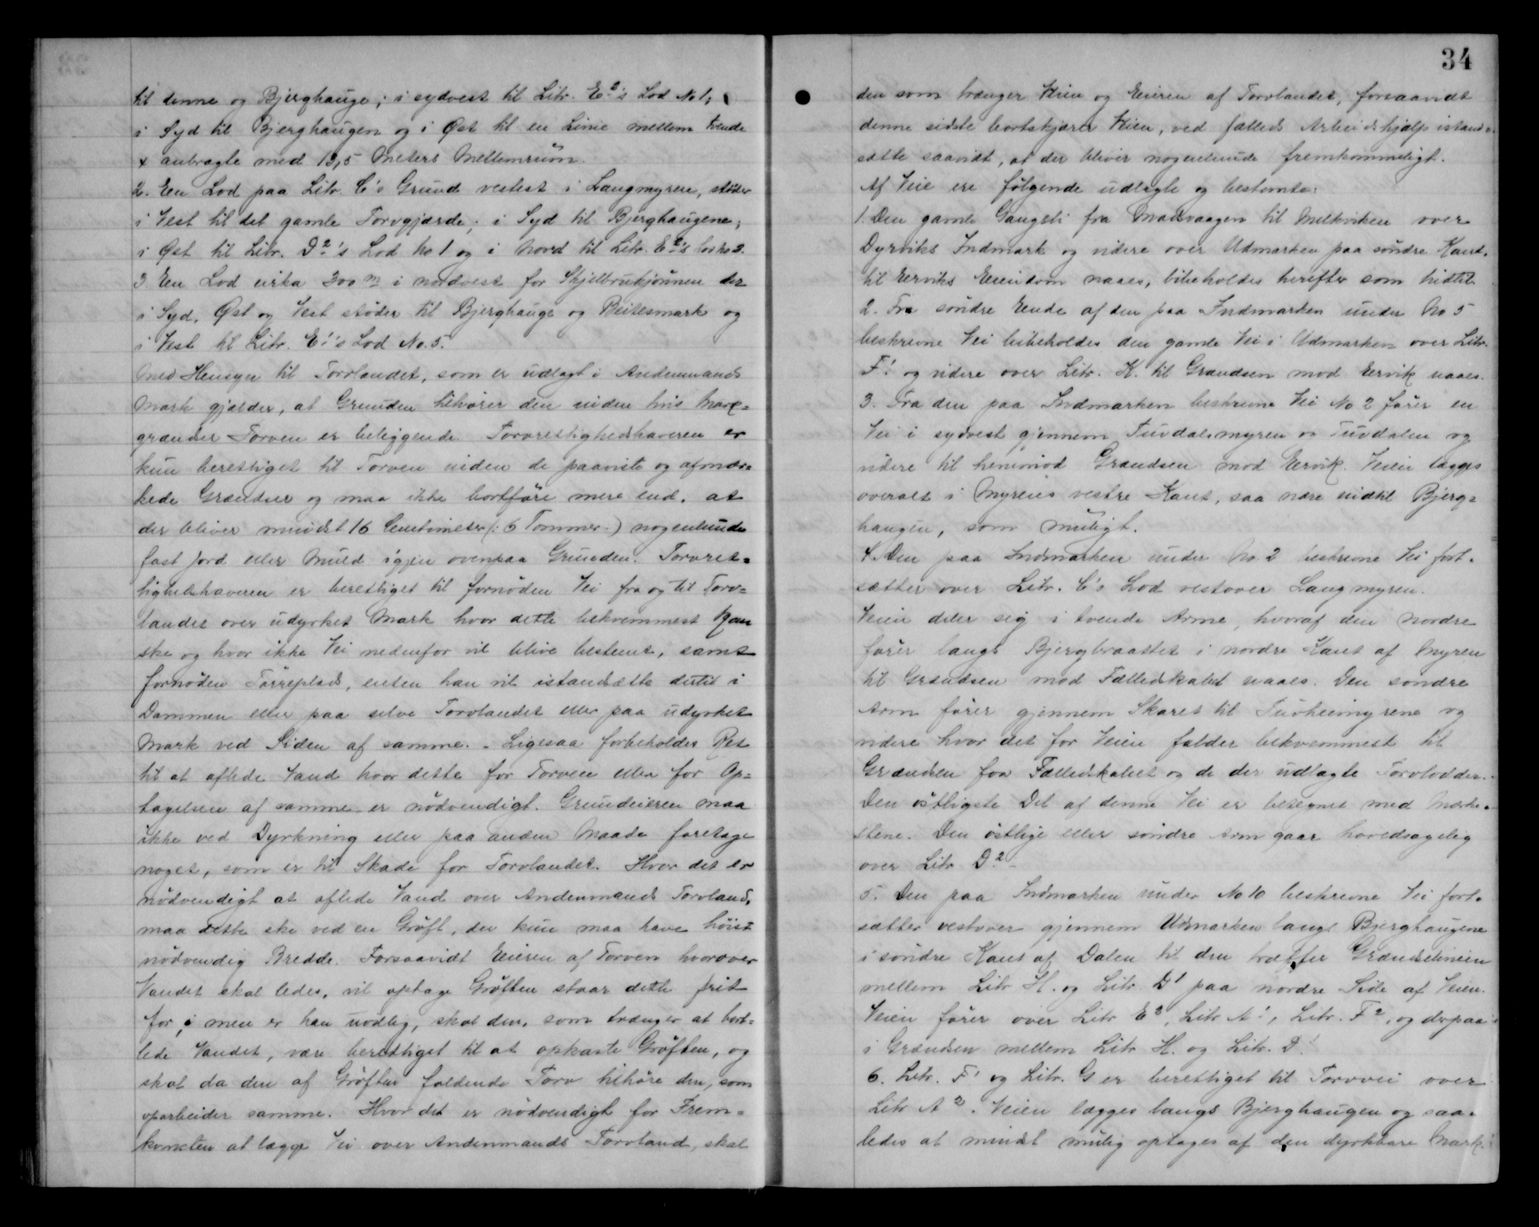 til denne og Bjerghauge; i sydvest til Litr. E²'s Lod No 1,
i Syd til Bjerghaugen og i Öst til en Linie mellem tvende
x anbragte med 13,5 Meters Mellemrum.
2. En Lod paa Litr. C's Grund vestest i Langmyren, stöder
i Vest til det gamle Torvgjærde; i Syd til Bjerghaugene;
i Öst til Litr. D²'s Lod No 1 og i Nord til Litr. E²'s Lod No 2.
3 En Lod cirka 300 m i nordvest for Skjelbreikjönnen der
i Syd, Öst og Vest stöder til Bjerghauge og Beitesmark og
i Vest til Litr. E¹'s Lod No. 5.
Med Hensyn til Torvlandet, som er udlagt i Andenmands
Mark gjælder, at Grunden tilhörer den inden hvis Mark-
grændser Torven er beliggende. Torvrettighedshaveren er
kun berettiget til Torven inden de paaviste og afmær-
kede Grændser og maa ikke bortföre mere end, at
der bliver mindst 16 Centimeter (: 6 Tommer :) nogenlunde
fast Jord eller Muld igjen ovenpaa Grunden. Torvret-
tighetshaveren er berettiget til fornöden Vei fra og til Torv-
landet over udyrket Mark hvor dette bekvemmest kan
ske og hvor ikke Vei nedenfor vil blive bestemt, samt
fornöden Törreplads, enten han vil istandsætte dertil i
Dammen eller paa selve Torvlandet eller paa udyrket
Mark ved Siden af samme. - Ligesaa forbeholdes Ret
til at aflede Vand hvor dette for Torven eller for Op-
tagelsen af samme er nödvendigt. Grundeieren maa
ikke ved Dyrkning eller paa anden Maade foretage
noget, som er til Skade for Torvlandet. Hvor det er
nödvendigt at aflede Vand over Andenmands Torvland,
maa dette ske ved en Gröft, der kun maa have höist
nödvendig Bredde. Forsaavidt Eieren af Torven hvorover
Vandet skal ledes, vil optage Gröften staar dette frit
for, men er han uvillig, skal den, som trænger at bort-
lede Vandet, være berettiget til at opkaste Gröften, og
skal da den af Gröften faldende Torv tilhöre den, som
oparbeider samme. Hvor det er nödvendigt for Frem-
komsten at lægge Vei over Andenmands Torvland, skal
34
den som trænger Veien og Eieren af Torvlandet, forsaavidt
denne sidste bortskjærer Veien, ved fælleds Arbeidshjælp istand-
sætte saavidt, at der bliver nogenlunde fremkommeligt.
Af Veie ere fölgende udlagte og bestemte:
1. Den gamle Gangsti fra Madvaagen til Melkviken over
Dyrviks Indmark og videre over Udmarken paa söndre Kant,
til Ervviks Eiendom naaes, bibeholdes herefter som hidtil
2. Fra söndre Ende af den paa Indmarken under No 5
beskrevne Vei bibeholdes den gamle Vei i Udmarken over Litr.
F¹ og videre over Litr. K. til Grændsen mod Ervik naaes.
3. Fra den paa Indmarken beskrevne Vei No 2 förer en
Vei i sydvest gjennem Tuvdalsmyren og Tuvdalen og
videre til henimod Grændsen mod Ervik. Veien lægges
overalt i Myrens vestre Kant, saa nære indtil Bjerg-
haugen, som muligt.
4. Den paa Indmarken under No 2 beskrevne Vei fort-
sætter over Litr. C's Lod vestover Langmyren.
Veien deler sig i tvende Arme, hvoraf den nordre
förer langs Bjergbraattet i nordre Kant af Myren
til Grændsen mod Fælledskabet naaes. Den söndre
Arm förer gjennem Skaret til Tuvheimyrene og
videre hvor det for Veien falder bekvemmest til
Grændsen for Fælledskabet og de der udlagte Torvlodder.
Den östligste Del af denne Vei er betegnet med Mærke-
stene. Den östlige eller söndre Arm gaar hovedsagelig
over Litr. D²
5. Den paa Indmarken under No 10 beskrevne Vei fort-
sætter vestover gjennem Udmarken langs Bjerghaugene
i söndre Kant af Dalen til den træffer Grændselinien
mellem Litr H. og Litr. D¹ paa nordre Side af Veien.
Veien förer over Litr E³, Litr A¹, Litr. F², og derpaa
i Grændsen mellem Litr H. og Litr. D¹
6. Litr. F¹ og Litr. G er berettiget til Torvvei over
Litr A². Veien lægges langs Bjerghaugen og saa-
ledes at mindst mulig optages af den dyrkbare Mark.